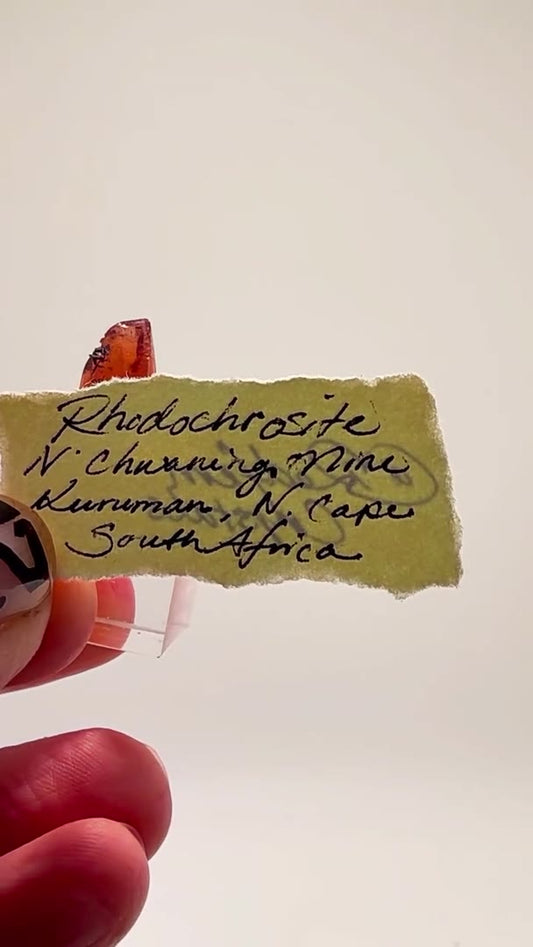 Rhodochrosite
N'Chwaning Mine
Kuruman, N. Cape
South Africa